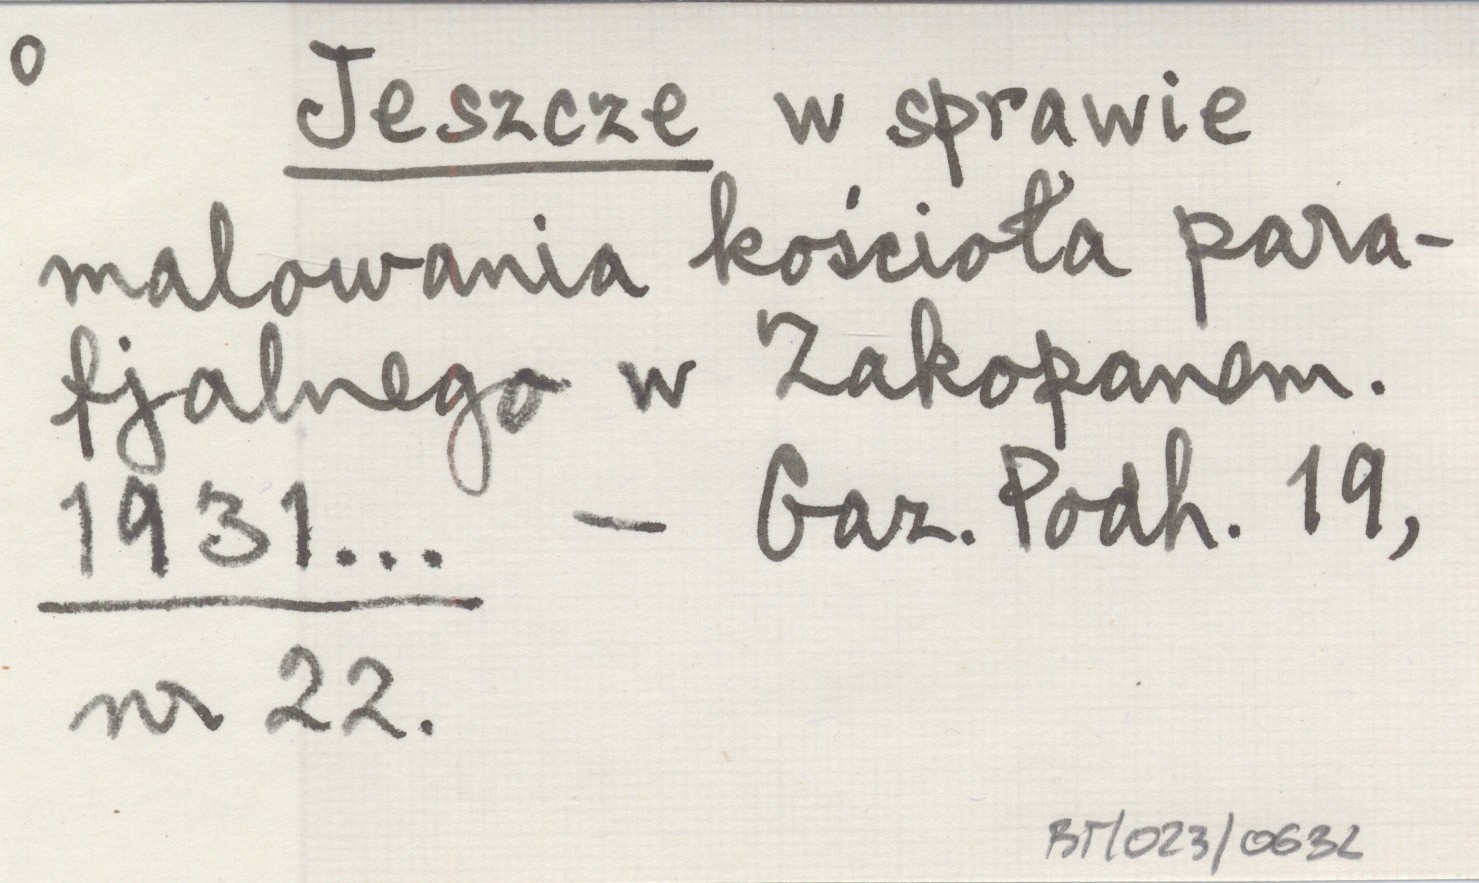 o
Jeszcze w sprawie
malowania kościoła para-
fjalnego w Zakopanem.
1931... — Gaz. Podh. 19,
nr 22.
BT/023/0632